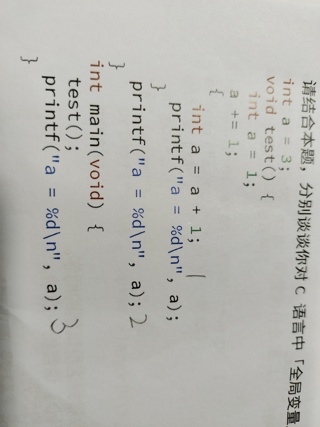 请结合本题，分别谈谈你对 C 语言中「全局变量
int a = 3;
void test() {
int a = 1;
a += 1;
{
int a = a + 1;
printf("a = %d\n", a); 1
}
printf("a = %d\n", a); 2
}
int main(void) {
test();
printf("a = %d\n", a); 3
}